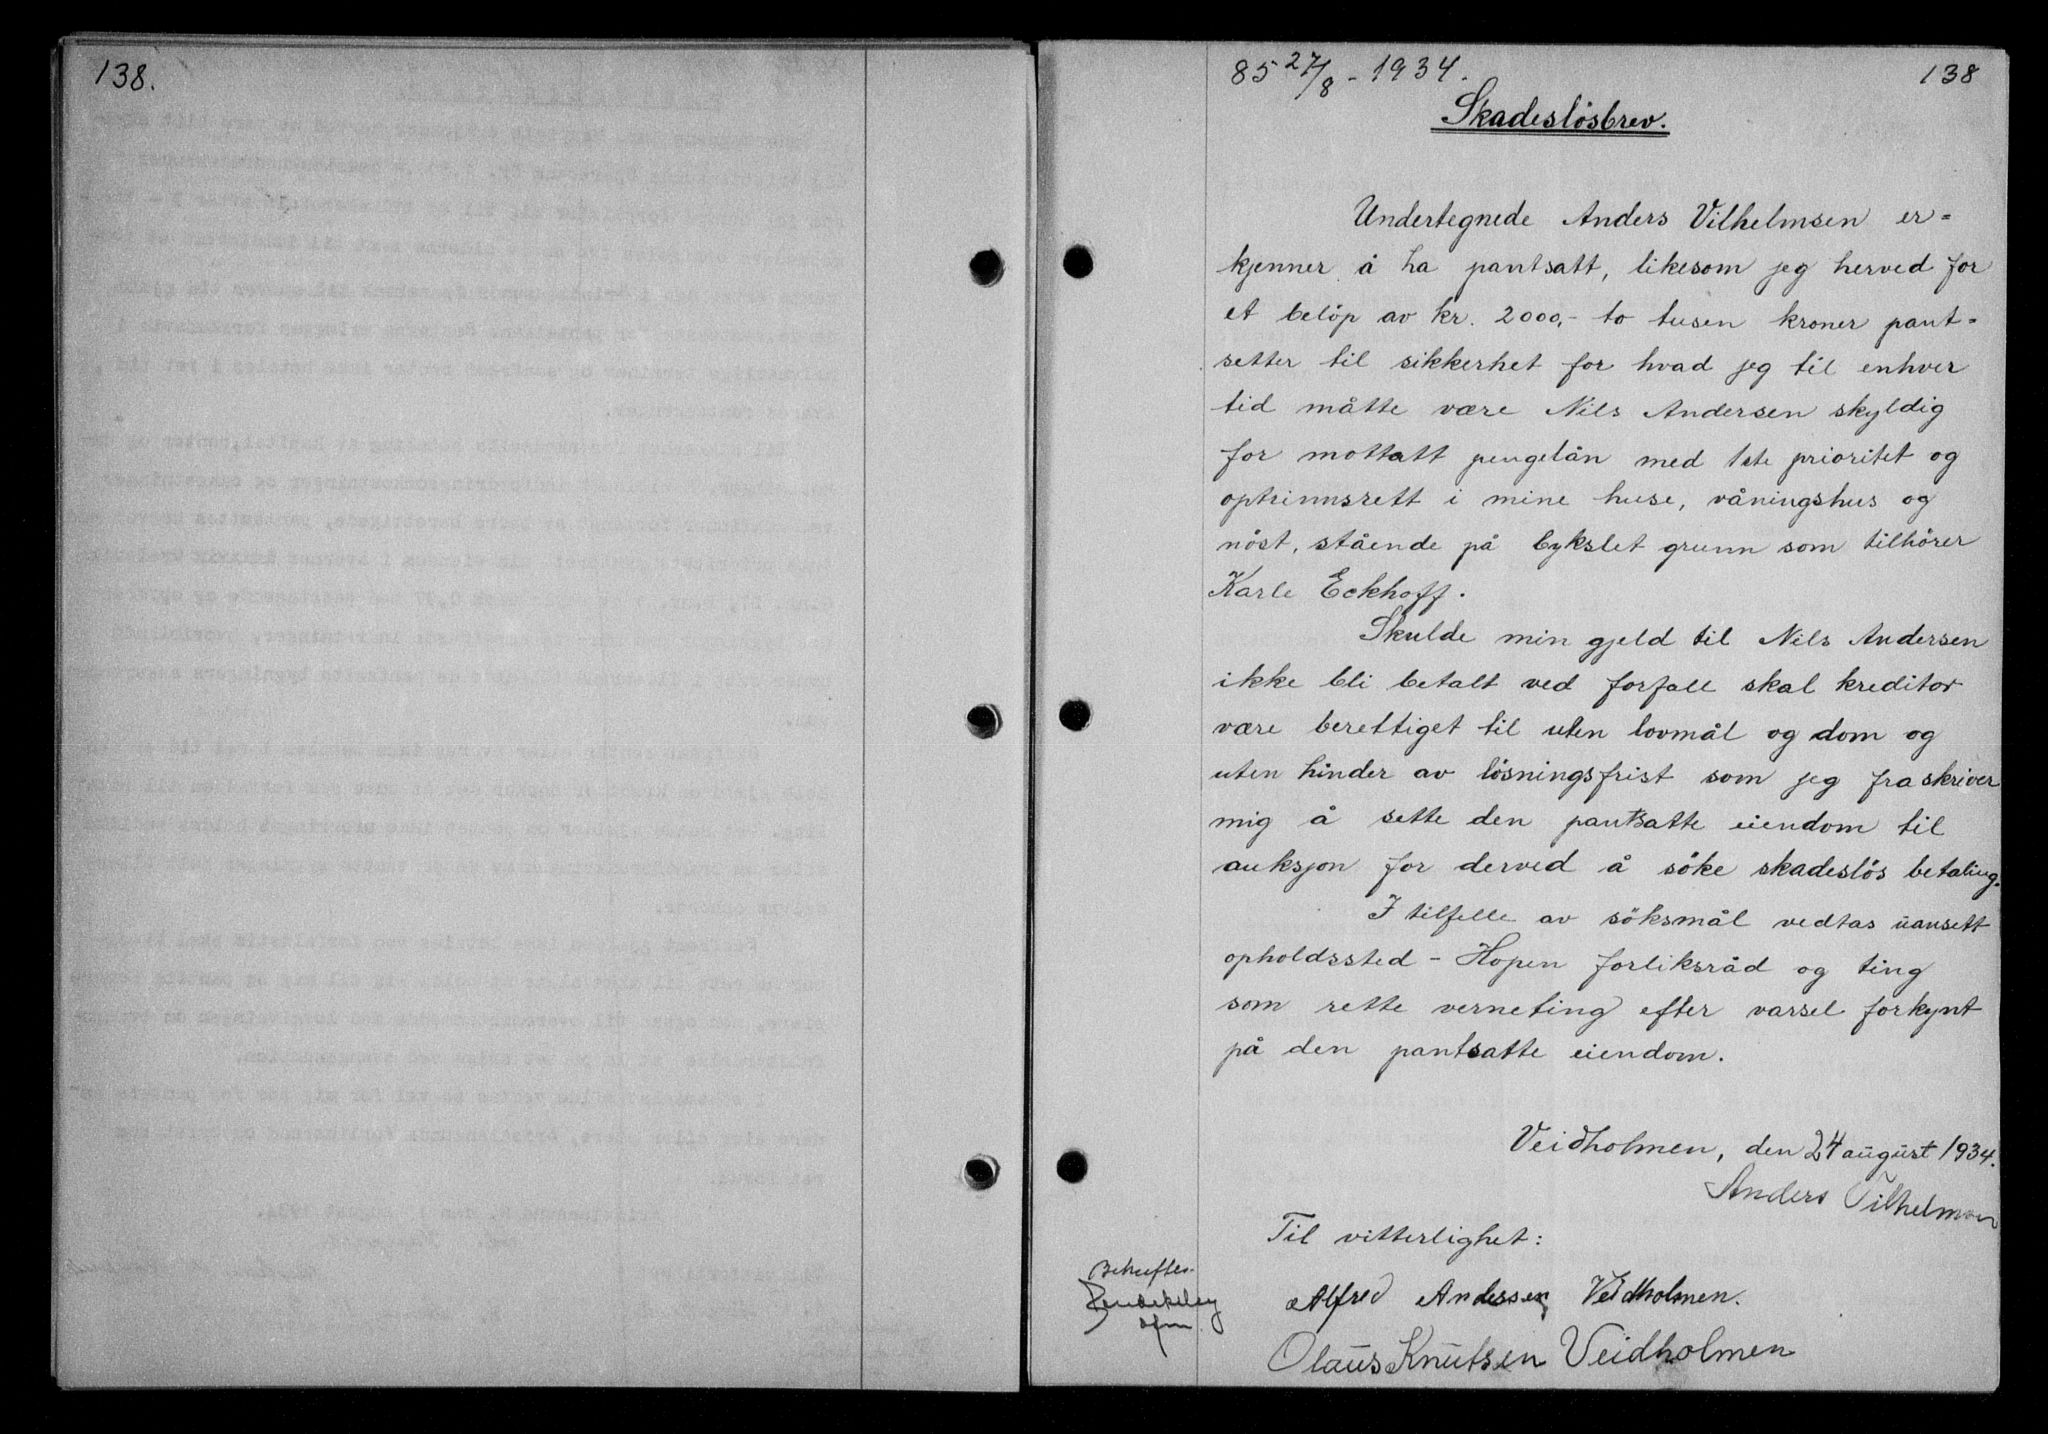 138.
85 27/8 - 1934.
138
Skadeslösbrev.
Undertegnede Anders Vilhelmsen er=
kjenner å ha pantsatt, likesom jeg herved for
et belöp av kr. 2000,- to tusen kroner pant=
setter til sikkerhet for hvad jeg til enhver
tid måtte være Nils Andersen skyldig
for mottatt pengelån med 1ste prioritet og
optrinnsrett i mine huse, våningshus og
nöst, stående på bykslet grunn som tilhörer
Karle Eckhoff.
Skulde min gjeld til Nils Andersen
ikke bli betalt ved forfall skal kreditor
være berettiget til uten lovmål og dom og
uten hinder av lösningsfrist som jeg fraskriver
mig å sette den pantsatte eiendom til
auksjon for derved å söke skadeslös betaling.
I tilfelle av söksmål vedtas uansett
opholdssted - Hopen forliksråd og ting
som rette verneting efter varsel forkynt
på den pantsatte eiendom.
Veidholmen, den 24 august 1934.
Anders Vilhelmsen
Til vitterlighet:
Alfred Andersen Veidholmen.
Olaus Knutsen Veidholmen